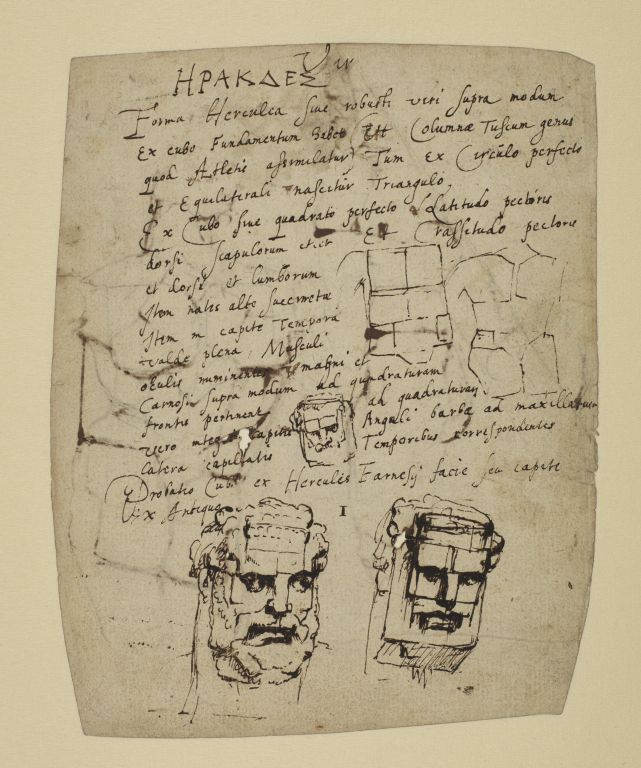 Vir
ΗΡΑΚΔΕΣ
Forma Herculea sive robusti veri supra modum
Ex cubo Fundamentum habet Est Columnæ Tuscum genus
quod Atletis assimilatur Tum Ex Circulo perfecto
et Equilaterali nascitur Triangulo,
Ex Cubo sive quadrato perfecto Latitudo pectoris
dorsi Scapulorum et Et Crassitudo pectoris
et dorsi et lumborum
Item nates alte succinctæ
Item in capite Tempora
valde plena, Musculi
oculis imminentes magni et
Carnosi supra modum ad quadraturam
frontis pertinent ad quadraturam
vero capitis Anguli barbæ ad maxillarum
Latera capitis Temporibus correspondentes
Probatio Cubi ex Hercules Farnesij facie seu capite
Ex Antique
I